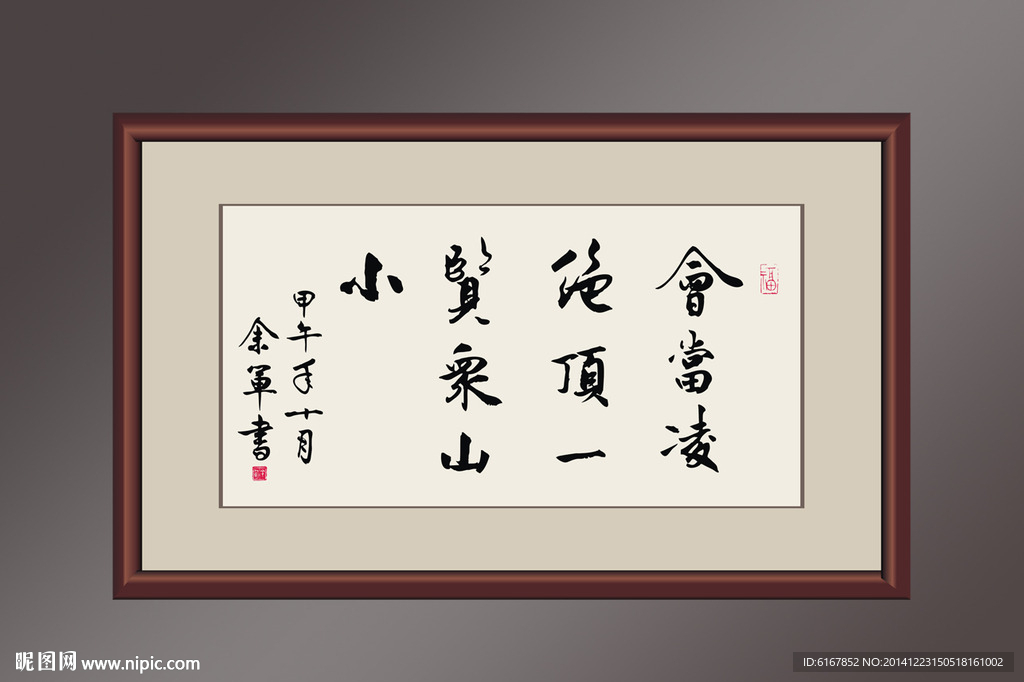 福
會當凌
絶頂一
覽衆山
小
甲午年十月
余軍書
昵图网 www.nipic.com
ID:6167852 NO:20141223150518161002